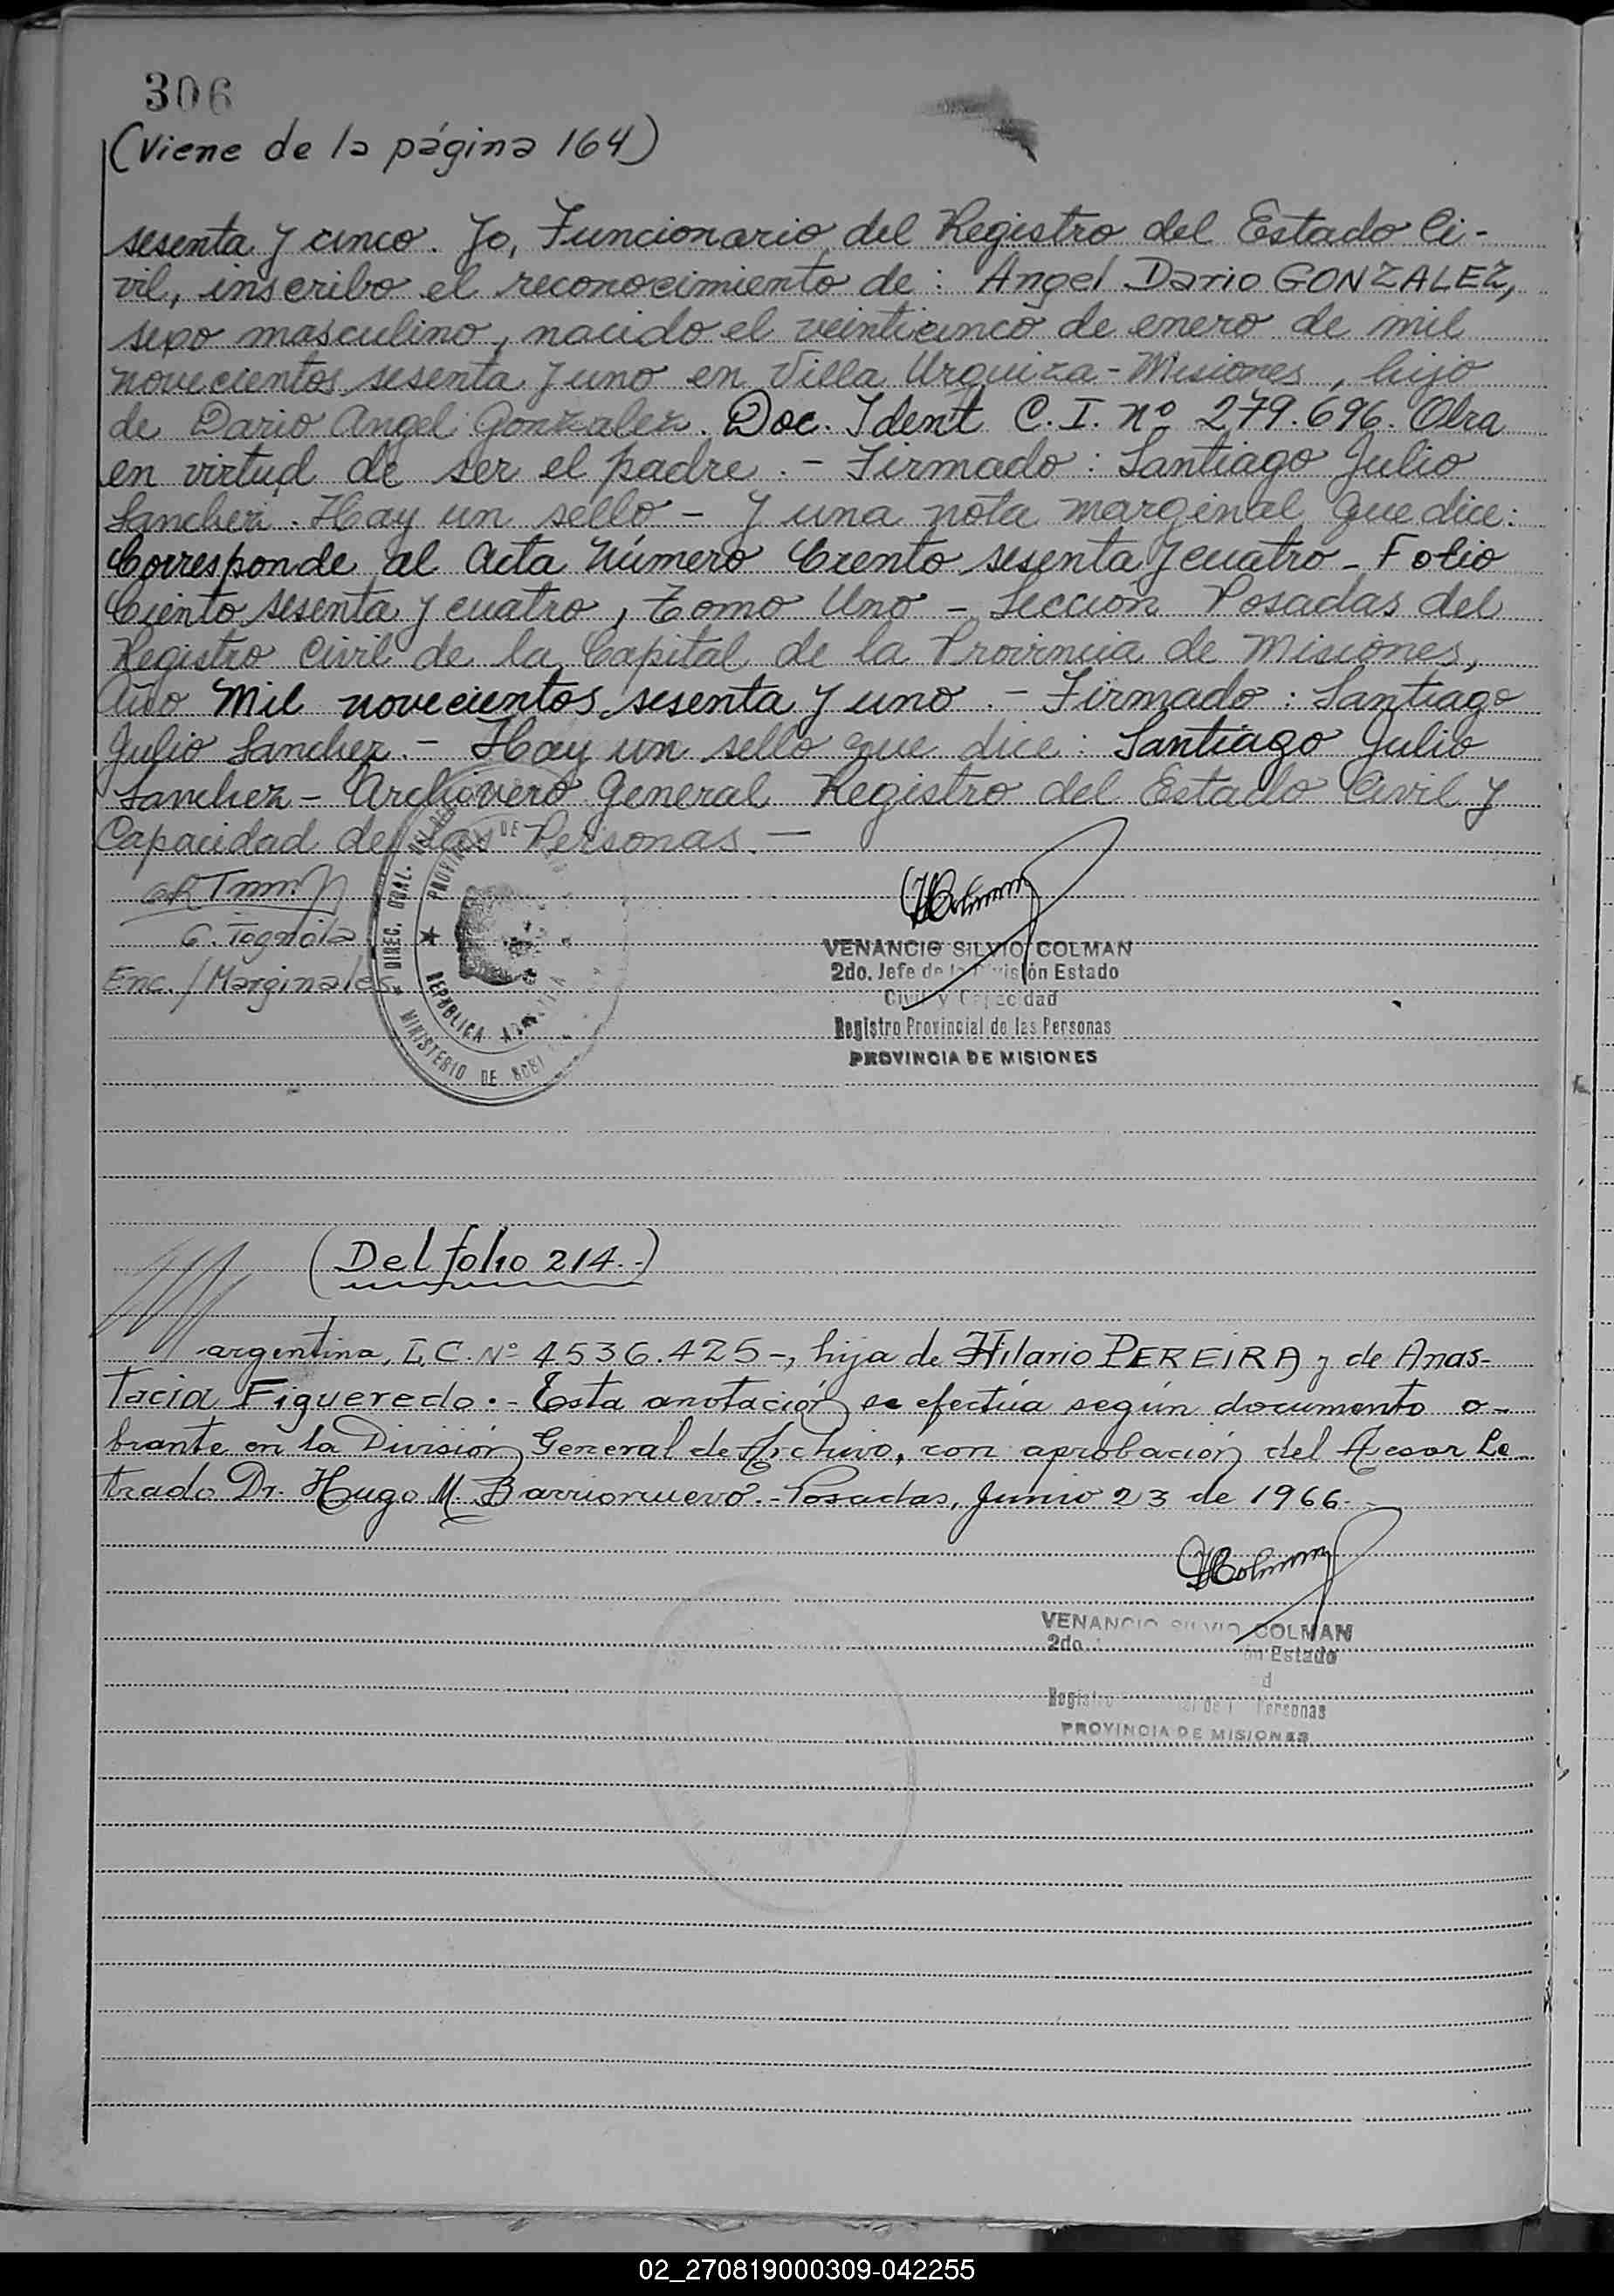 306
(Viene de la página 164)
sesenta y cinco. Yo, Funcionario del Registro del Estado Ci-
vil, inscribo el reconocimiento de: Angel Dario GONZALEZ,
sexo masculino, nacido el veinticinco de enero de mil
novecientos sesenta y uno en Villa Urquiza-Misiones, hijo
de Dario Angel Gonzalez. Doc. Ident C.I. nº 279.696. Obra
en virtud de ser el padre.- Firmado: Santiago Julio
Sanchez. Hay un sello - y una nota marginal que dice:
Corresponde al Acta Número Ciento sesenta y cuatro - Folio
Ciento sesenta y cuatro, Tomo Uno - Sección Posadas del
Registro Civil de la Capital de la Provincia de Misiones,
Año Mil novecientos sesenta y uno.- Firmado: Santiago
Julio Sanchez.- Hay un sello que dice: Santiago Julio
Sanchez - Archivero General Registro del Estado Civil y
Capacidad de las Personas.-
G. Tognola
Enc./Marginales
DIREC. GRAL. DEL REG
PROVINCIA DE
REPUBLICA
MINISTERIO DE GOBI
VENANCIO SILVIO COLMAN
2do. Jefe de la División Estado
Civil y Capacidad
Registro Provincial de las Personas
PROVINCIA DE MISIONES
(Del folio 214.-)
argentina, L.C. Nº 4536.425-, hija de Hilario PEREIRA y de Anas-
tacia Figueredo.- Esta anotación se efectúa según documento o-
brante en la División General de Archivo, con aprobación del Asesor Le-
trado Dr. Hugo M. Barrionuevo.- Posadas, Junio 23 de 1966.-
VENANCIO SILVIO COLMAN
2do.
Estado
Registro Personas
PROVINCIA DE MISIONES
02_270819000309-042255